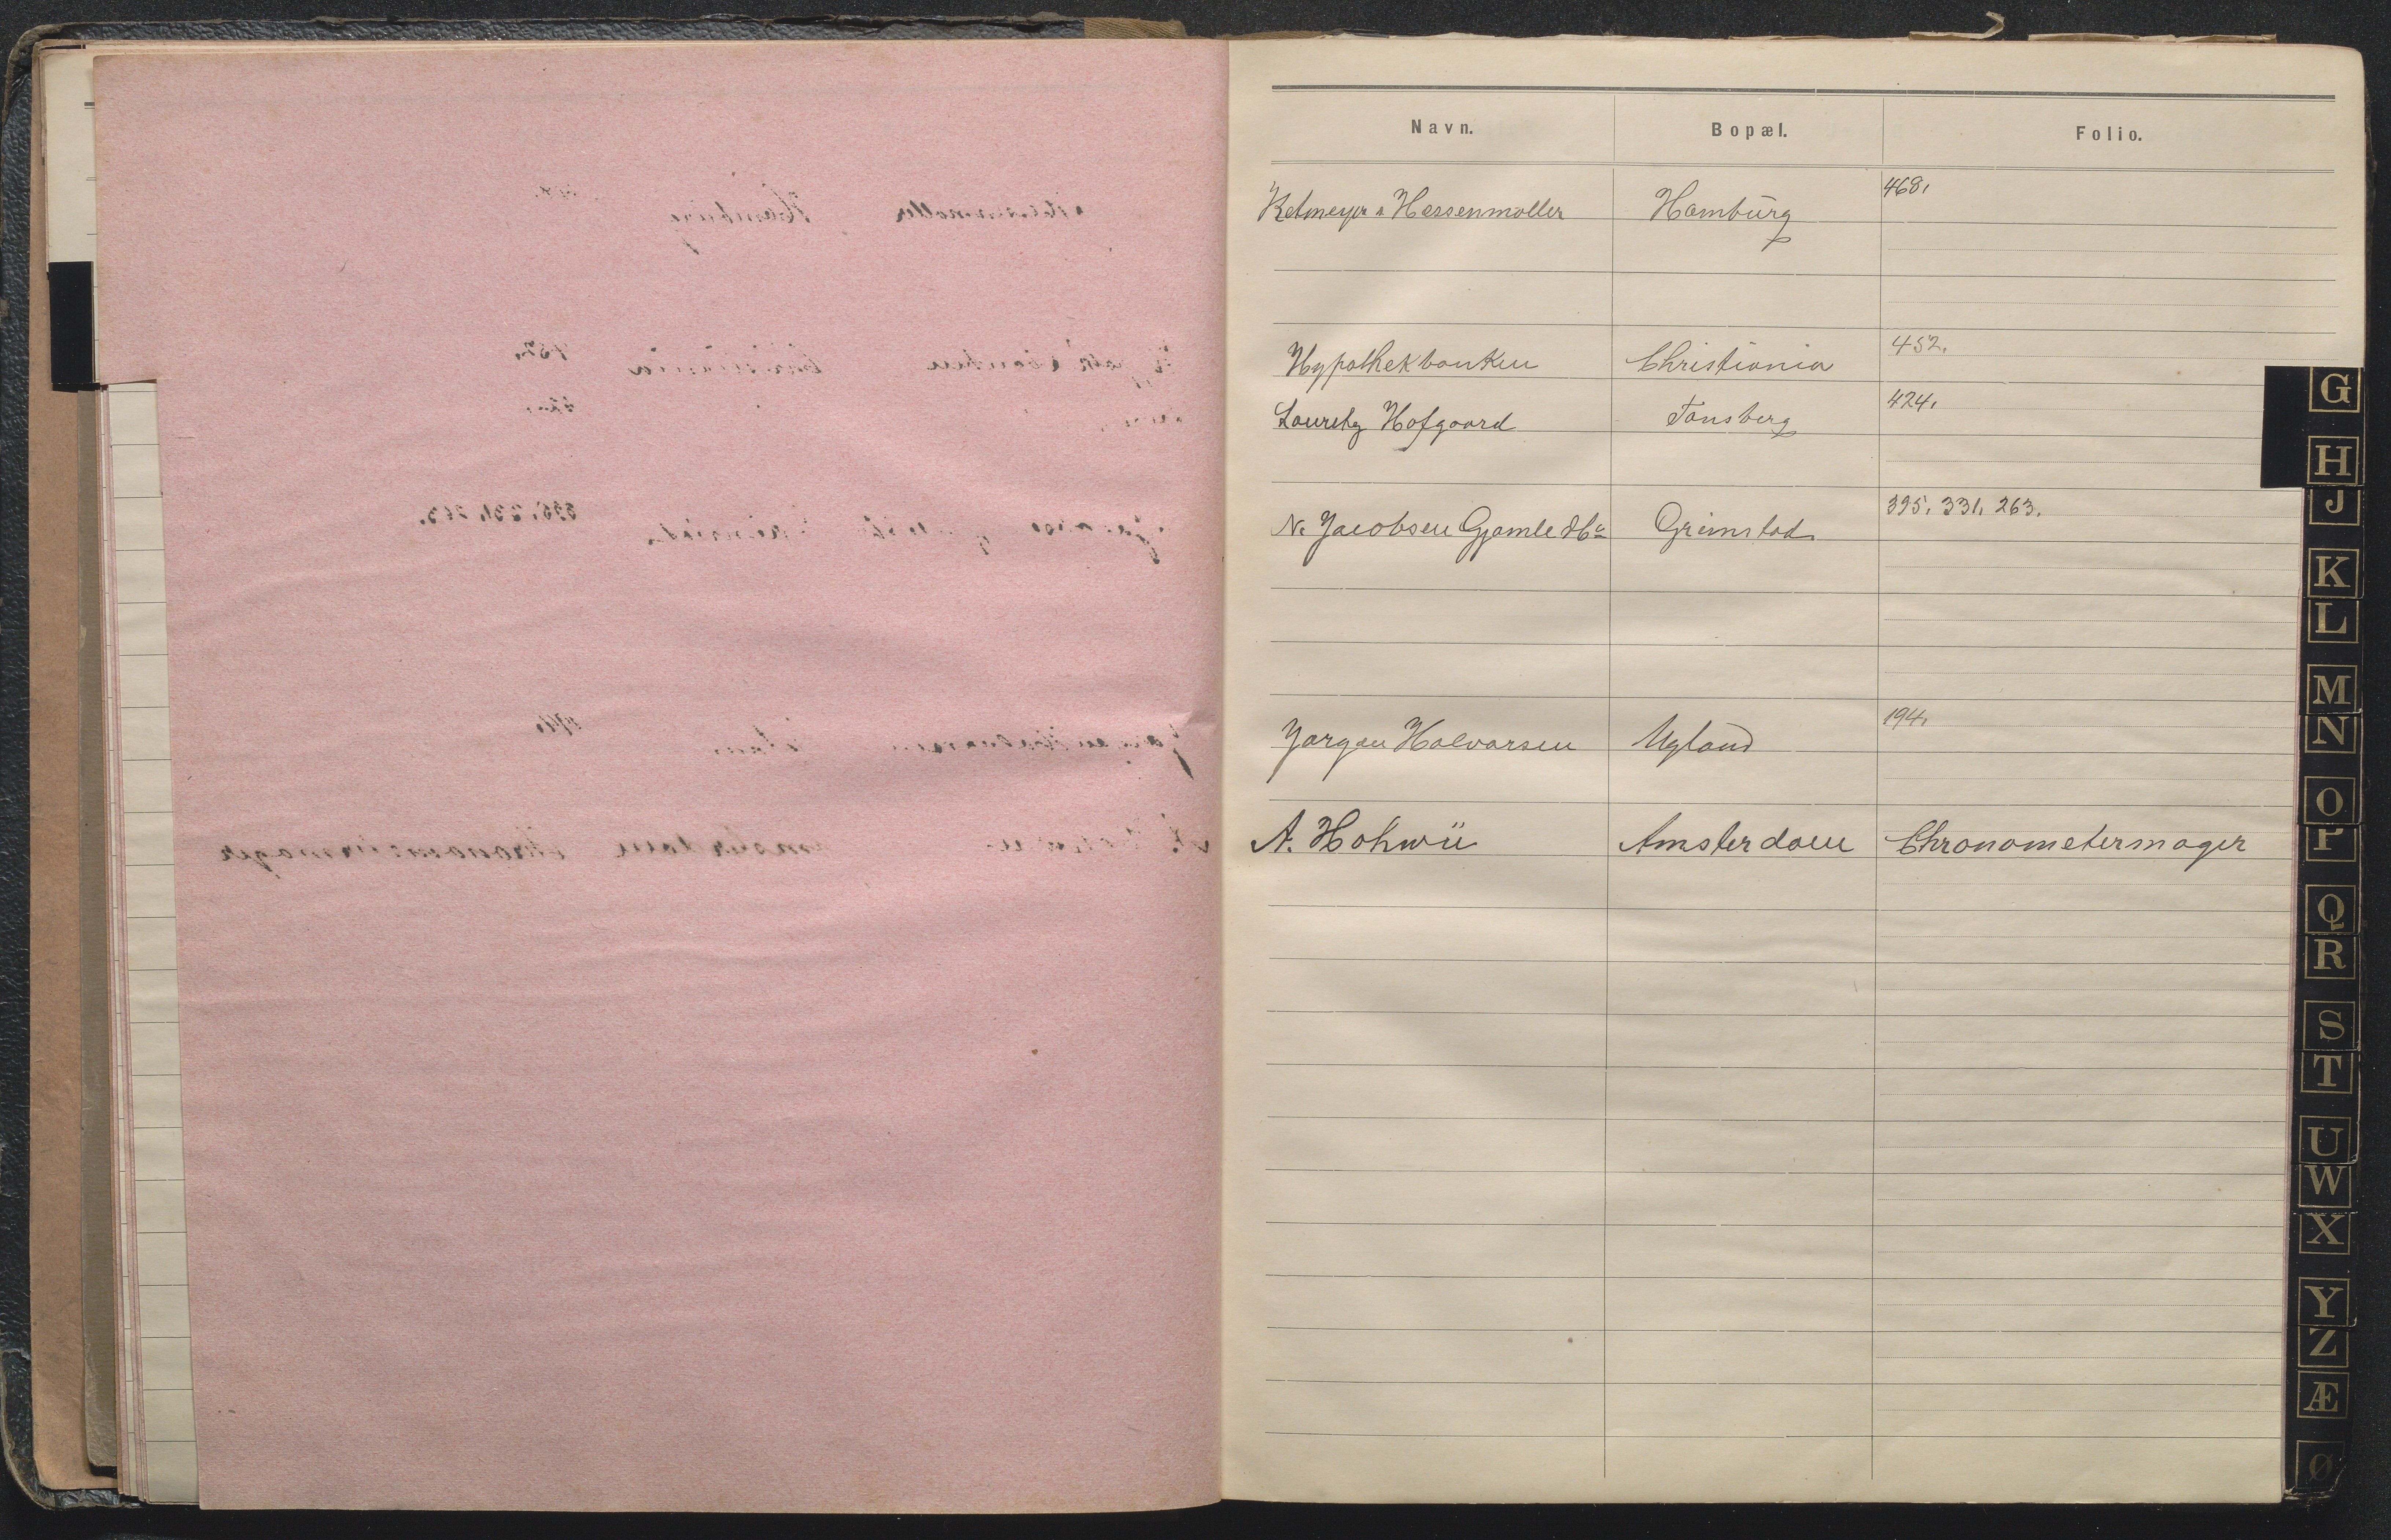 Navn. Bopæl. Folio.
Retmeyer & Hessenmøller Hamburg 468,
Hypothekbanken Christiania 452,
Lauritz Hofgaard Tønsberg 424,
N. Jacobsen Gjømle Grimstad 395, 331, 263.
Jørgen Halvorsen Ugland 194,
A. Hohwü Amsterdam Chronometermager
G
H
J
K
L
M
N
O
P
Q
R
S
T
U
W
X
Y
Z
Æ
Ø